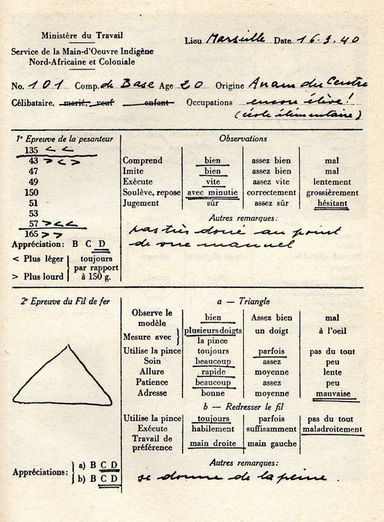 Ministère du Travail
Service de la Main-d'Oeuvre Indigène
Nord-Africaine et Coloniale
Lieu Marseille Date 16.3.40
No. 101 Comp. de Base Age 20 Origine Anam du Centre
Célibataire, marié, veuf enfant Occupations encore élève!
(école élémentaire)
1e Epreuve de la pesanteur
135 < <
43 > < >
47
49
150
51
53
57 > < <
165 > >
Appréciation: B C D
< Plus léger
> Plus lourd
toujours
par rapport
à 150 g.
Observations
Comprend bien assez bien mal
Imite bien assez bien mal
Exécute vite assez vite lentement
Soulève, repose avec minutie correctement grossièrement
Jugement sûr assez sûr hésitant
Autres remarques:
pas très doué au point
de vue manuel
2e Epreuve du Fil de fer
a — Triangle
Observe le
modèle bien Assez bien mal
Mesure avec plusieurs doigts un doigt à l'oeil
la pince
Utilise la pince toujours parfois pas du tout
Soin beaucoup assez peu
Allure rapide moyenne lente
Patience beaucoup assez peu
Adresse bonne moyenne mauvaise
b — Redresser le fil
Utilise la pince toujours parfois pas du tout
Exécute habilement suffisamment maladroitement
Travail de
préférence main droite main gauche
Appréciations: a) B C D
b) B C D
Autres remarques:
se donne de la peine.